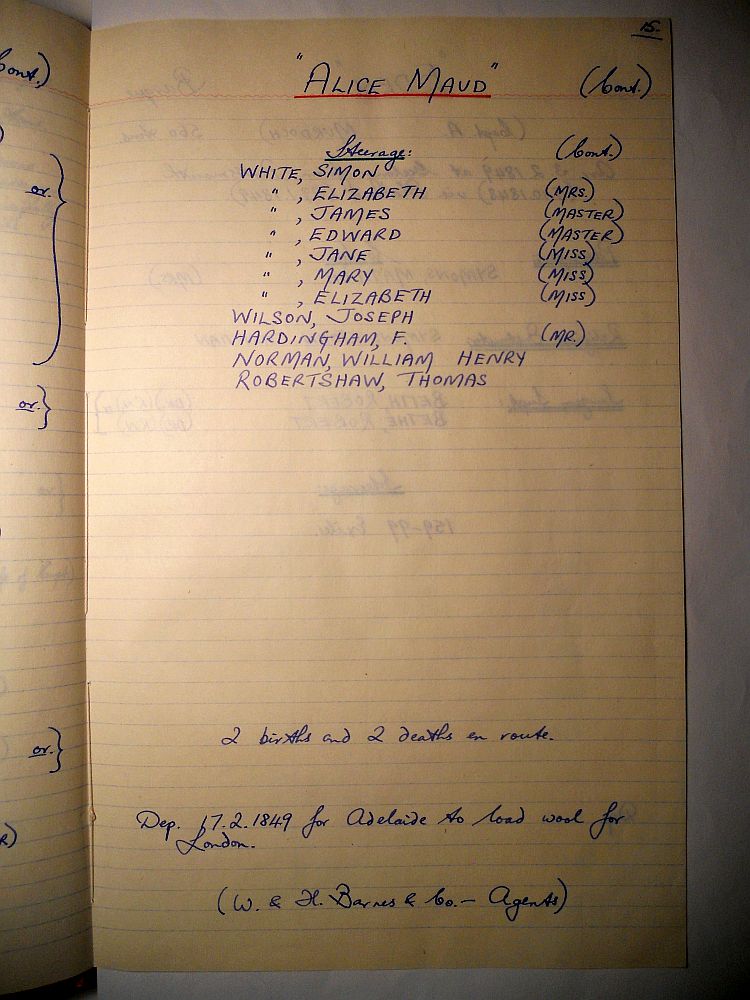 15.
"ALICE MAUD" (Cont.)
Steerage: (Cont.)
WHITE, SIMON
" , ELIZABETH (MRS.)
" , JAMES (MASTER)
" , EDWARD (MASTER)
" , JANE (MISS)
" , MARY (MISS)
" , ELIZABETH (MISS)
WILSON, JOSEPH
HARDINGHAM, F. (MR.)
NORMAN, WILLIAM HENRY
ROBERTSHAW, THOMAS
2 births and 2 deaths en route.
Dep. 17.2.1849 for Adelaide to load wool for
London.
(W. & H. Barnes & Co. – Agents)
Cont.)
or.
or.
or.